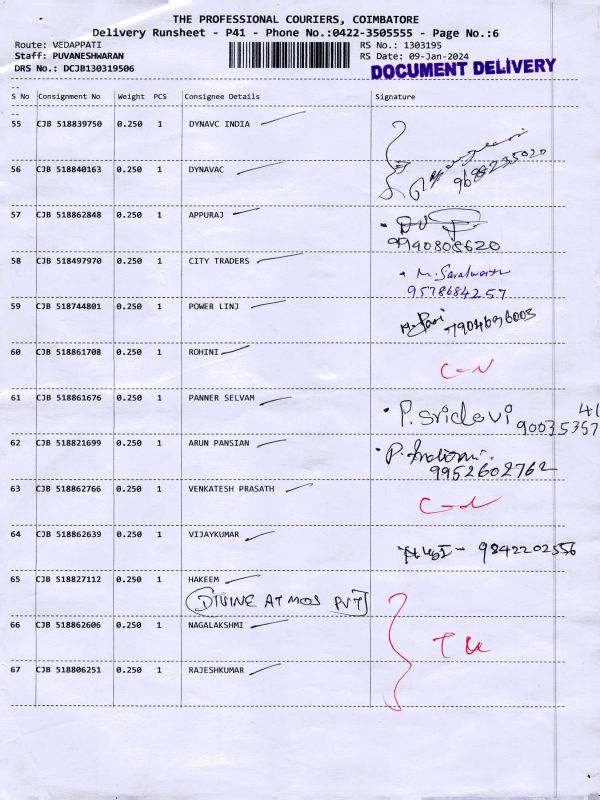 THE PROFESSIONAL COURIERS, COIMBATORE
Delivery Runsheet - P41 - Phone No.:0422-3505555 - Page No.:6
Route: VEDAPPATI RS No.: 1303195
Staff: PUVANESHWARAN RS Date: 09-Jan-2024
DRS No.: DCJB130319506 DOCUMENT DELIVERY
S No Consignment No Weight PCS Consignee Details Signature
55 CJB 518839750 0.250 1 DYNAVC INDIA
56 CJB 518840163 0.250 1 DYNAVAC 9688235020
57 CJB 518862848 0.250 1 APPURAJ
9940808620
58 CJB 518497970 0.250 1 CITY TRADERS
9578684257
59 CJB 518744801 0.250 1 POWER LINJ
60 CJB 518861708 0.250 1 ROHINI
61 CJB 518861676 0.250 1 PANNER SELVAM P. Sridevi
90035357
62 CJB 518821699 0.250 1 ARUN PANSIAN
9952602762
63 CJB 518862766 0.250 1 VENKATESH PRASATH
64 CJB 518862639 0.250 1 VIJAYKUMAR 9842202556
65 CJB 518827112 0.250 1 HAKEEM
DIVINE ATMOS PVT
66 CJB 518862606 0.250 1 NAGALAKSHMI
67 CJB 518806251 0.250 1 RAJESHKUMAR